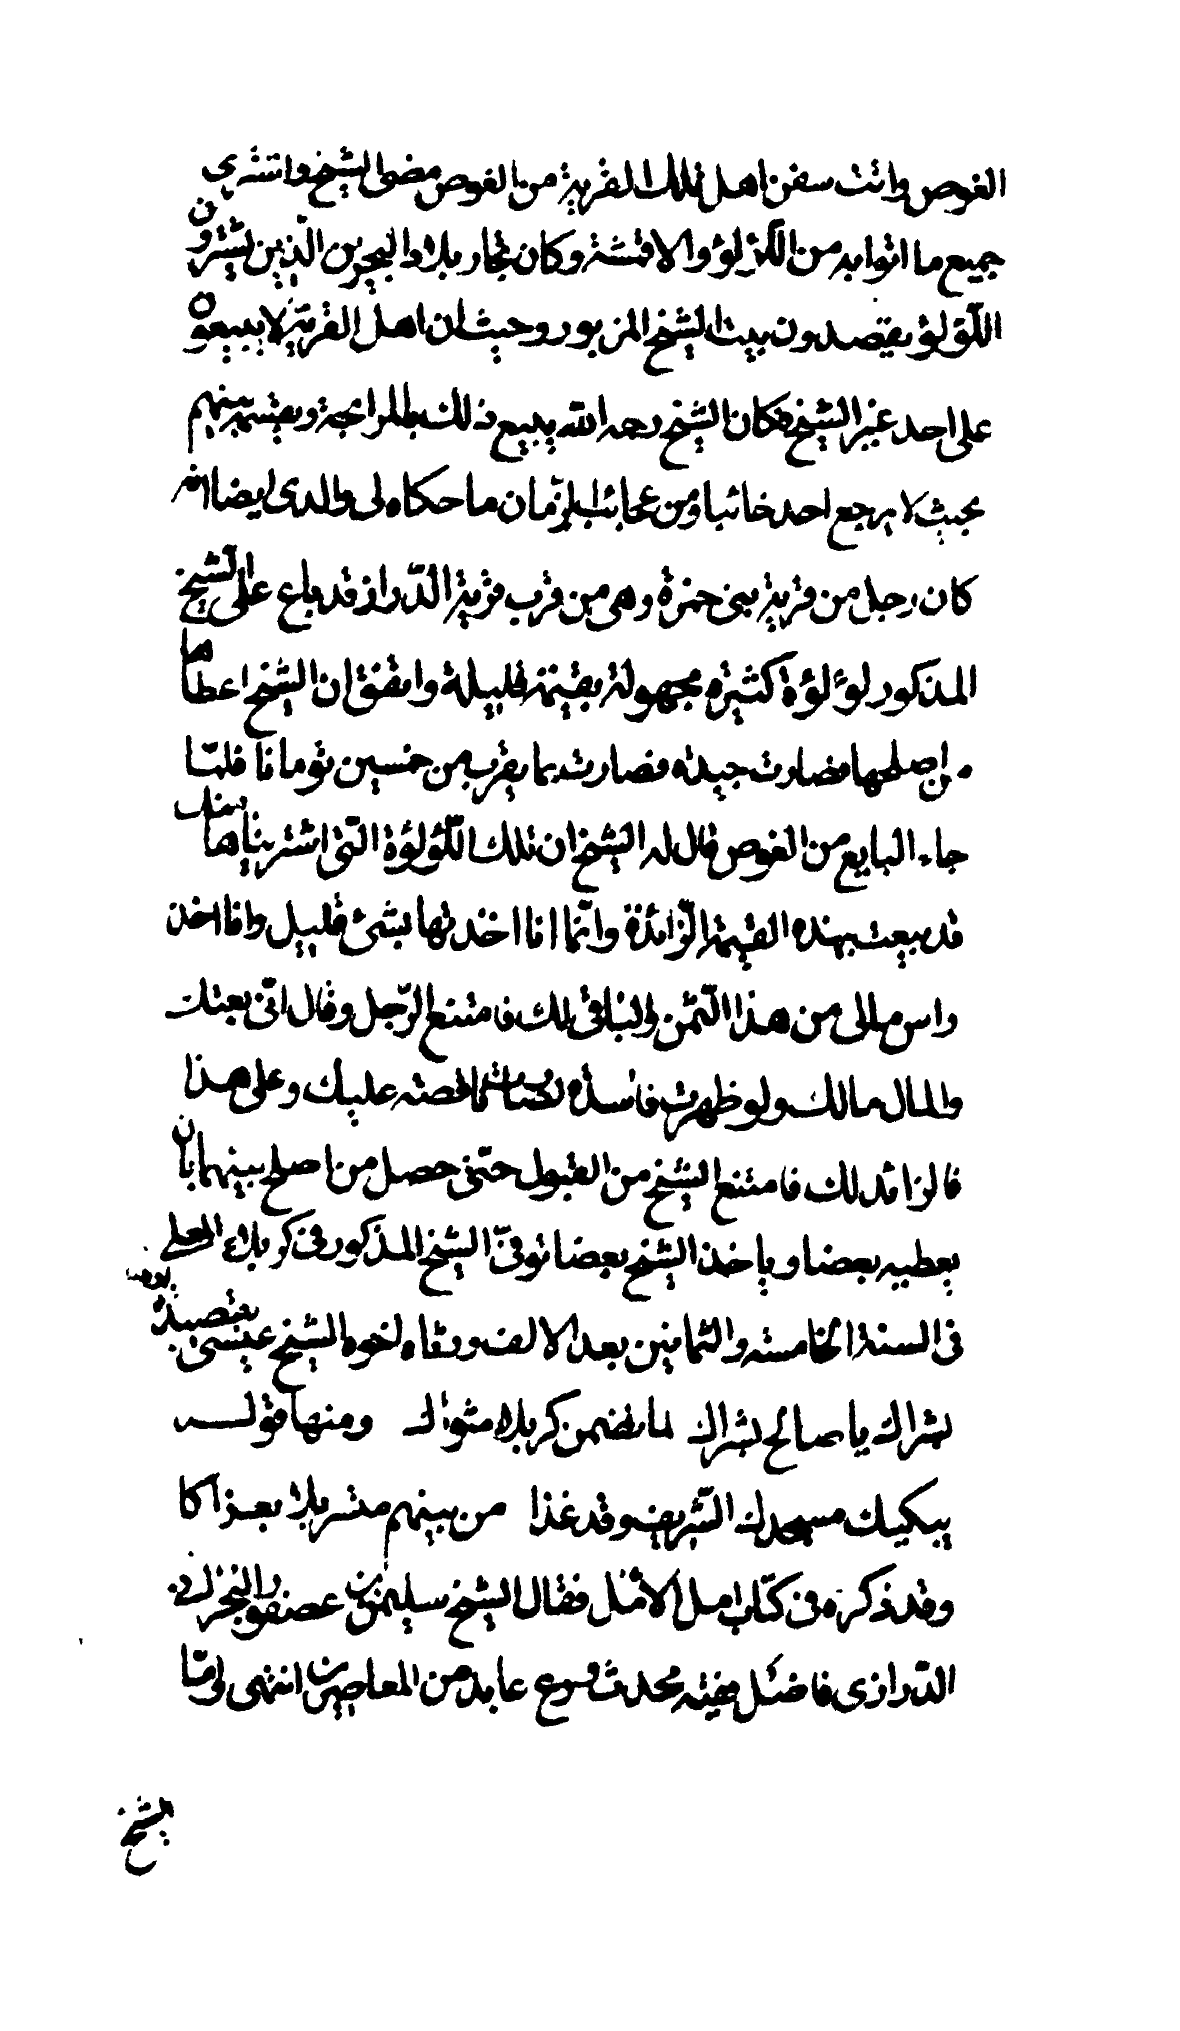 الغوص واتت سفن اهل تلك القرية من الغوص مضى الشيخ واشترى
جميع ما اتوا به من اللؤلؤ والاقمشة وكان تجار بلاد البحرين الذين يشترون
اللؤلؤ يقصدون بيت الشيخ المزبور وحيث ان اهل القرية لا يبيعون
على احد غير الشيخ فكان الشيخ رحمه الله يبيع ذلك بالمرابحة ويقسم بينهم
بحيث لا يرجع احد خائبا ومن عجائب الزمان ما حكاه لي والدي ايضا انه
كان رجل من قرية بني حمزة وهي من قرب قرية الدراز قد باع على الشيخ
المذكور لؤلؤة كثيرة مجهولة بقيمة قليلة واتفق ان الشيخ اعطاها
من اصلحها فصارت جيده فصارت بما يقرب من خمسين تومانا فلما
جاء البايع من الغوص قال له الشيخ ان تلك اللؤلؤة التي اشتريناها منك
قد بيعت بهذه القيمة الزائدة وانما انا اخذتها بشئ قليل وانا اخذ
راس مالي من هذا الثمن والباقي لك فامتنع الرجل وقال اني بعتك
والمال مالك ولو ظهرت فاسدة لكانت عليك وعلى هذا
فالزائد لك فامتنع الشيخ من القبول حتى حصل من اصلح بينهما بان
يعطيه بعضا وياخذ الشيخ بعضا توفي الشيخ المذكور في كربلاء المعلى
في السنة الخامسة والثمانين بعد الالف ورثاه اخوه الشيخ عيسى بقصيدة
بشراك يا صالح بشراك لما تضمن كربلاء مثواك ومنها قوله
يبكيك مسجدك الشريف وقد غذا من بينهم متسربلا بعزاكا
وقد ذكره في كتاب امل الآمل فقال الشيخ سليمن بن عصفور البحراني
الدرازي فاضل فقيه محدث ورع عابد من المعاصرين انتهى واما
الشيخ